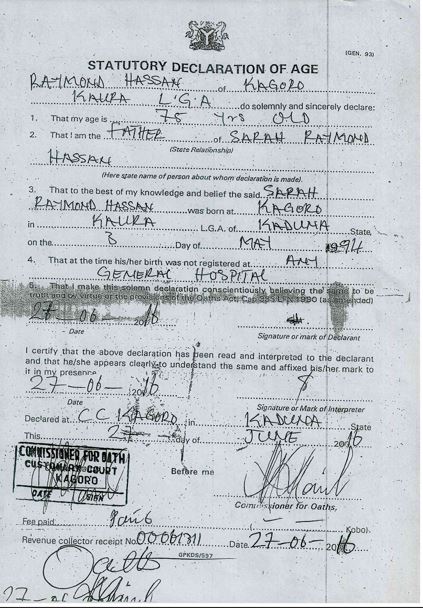 (GEN. 93)
STATUTORY DECLARATION OF AGE
RAYMOND HASSAN of KAGORO
KAURA L.G.A do solemnly and sincerely declare:
1. That my age is 75 Yrs OLD
2. That I am the FATHER of SARAH RAYMOND
(State Relationship)
HASSAN
(Here state name of person about whom declaration is made).
3. That to the best of my knowledge and belief the said SARAH
RAYMOND HASSAN was born at KAGORO
in KAURA L.G.A. of KADUNA State
on the 3 Day of MAY 1994
4. That at the time his/her birth was not registered at ANY
GENERAL HOSPITAL
5. That I make this solemn declaration conscientiously believing the same to be
true and by virtue of the provisions of the Oaths Act, Cap 333 LFN 1990 (as amended)
27-06 2016
Date Signature or mark of Declarant
I certify that the above declaration has been read and interpreted to the declarant
and that he/she appears clearly to understand the same and affixed his/her mark to
it in my presence
27-06- 2016
Date Signature or Mark of Interpreter
Declared at C C KAGORO in KADUNA State
This 27 day of JUNE 2016
COMMISSIONER FOR OATH
CUSTOMARY COURT
KAGORO
DATE SIGN
Before me
Commissioner for Oaths,
Fee paid Kobo).
Revenue collector receipt No. 00061311 Date 27-06- 2016
GPKDS/597
Oaths